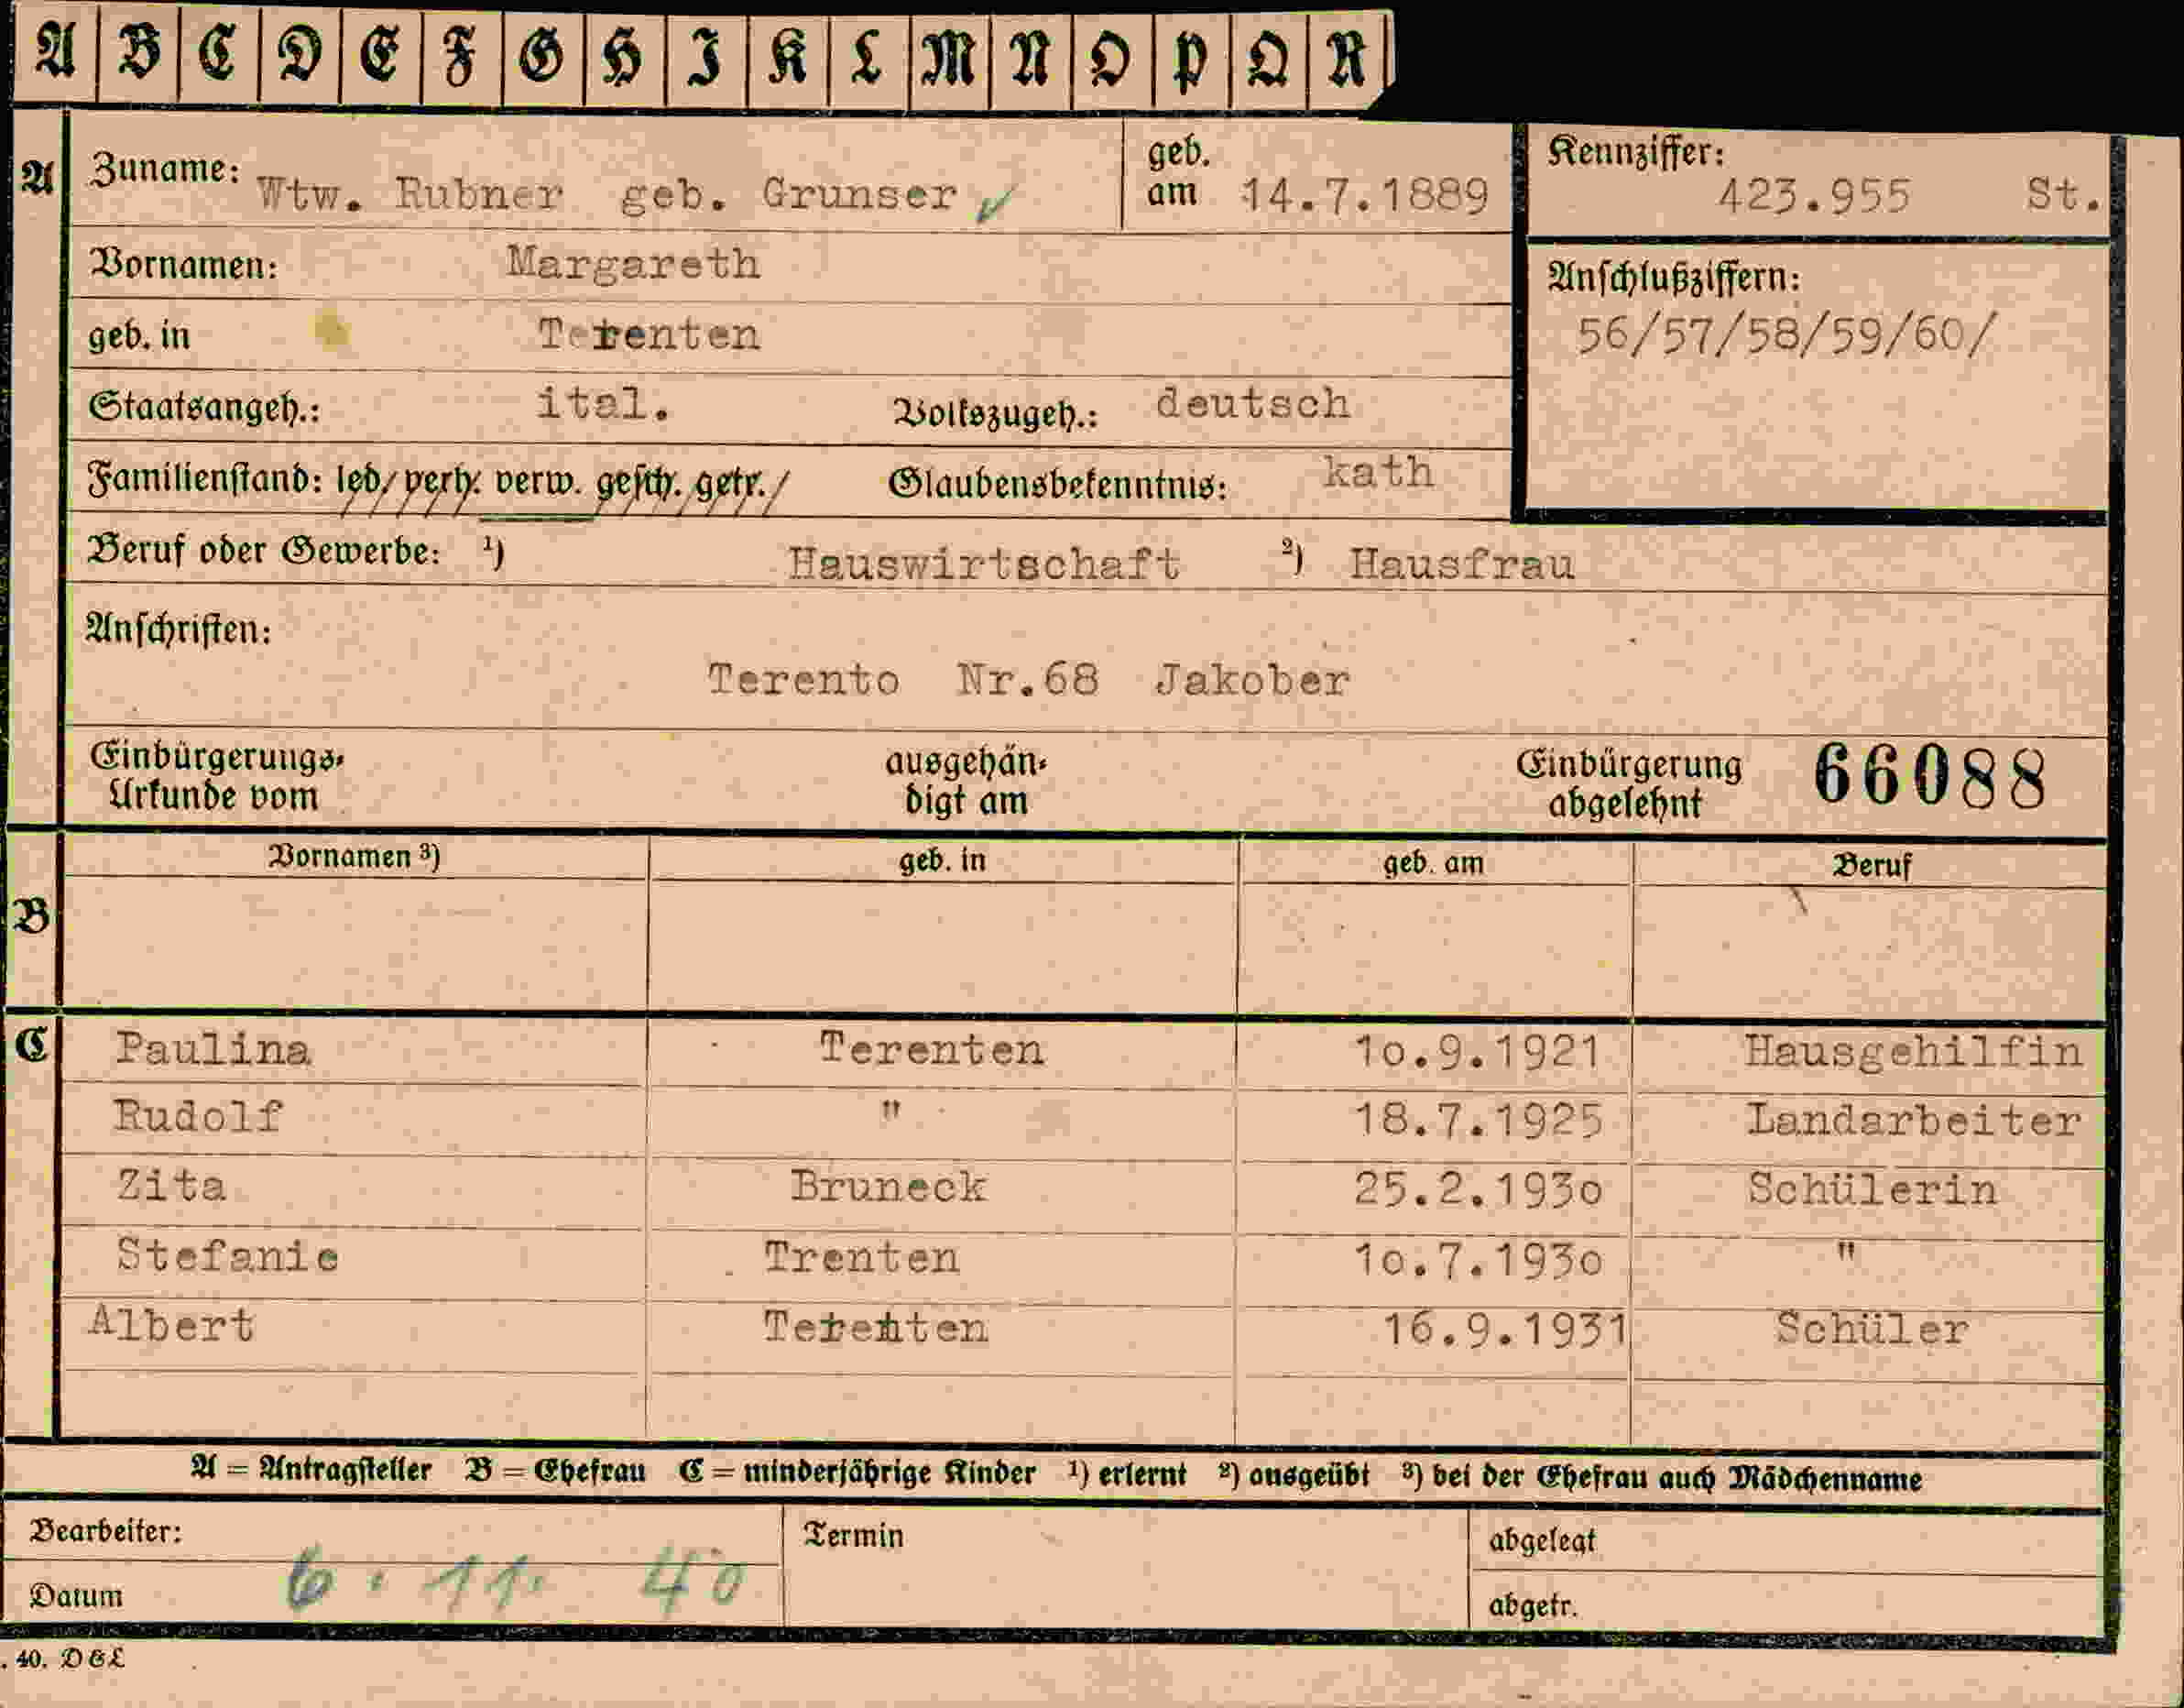 A B C D E F G H I K L M N O P Q R
A Zuname: Wtw. Rubner geb. Grunser ✓ geb. am 14.7.1889 Kennziffer: 423.955 St.
Vornamen: Margareth
Anschlußziffern:
56/57/58/59/60/
geb. in Terenten
Staatsangeh.: ital. Volkszugeh.: deutsch
Familienstand: led. verh. verw. gesch. getr. Glaubensbekenntnis: kath
Beruf oder Gewerbe: ¹) Hauswirtschaft ²) Hausfrau
Anschriften:
Terento Nr.68 Jakober
Einbürgerungs-Urkunde vom ausgehändigt am Einbürgerung abgelehnt 66088
Vornamen ³) geb. in geb. am Beruf
B
C Paulina Terenten 10.9.1921 Hausgehilfin
Rudolf " 18.7.1925 Landarbeiter
Zita Bruneck 25.2.1930 Schülerin
Stefanie Trenten 10.7.1930 "
Albert Terenten 16.9.1931 Schüler
A = Antragsteller B = Ehefrau C = minderjährige Kinder ¹) erlernt ²) ausgeübt ³) bei der Ehefrau auch Mädchenname
Bearbeiter: Termin abgelegt
Datum 6. 11. 40 abgetr.
. 40. DGL